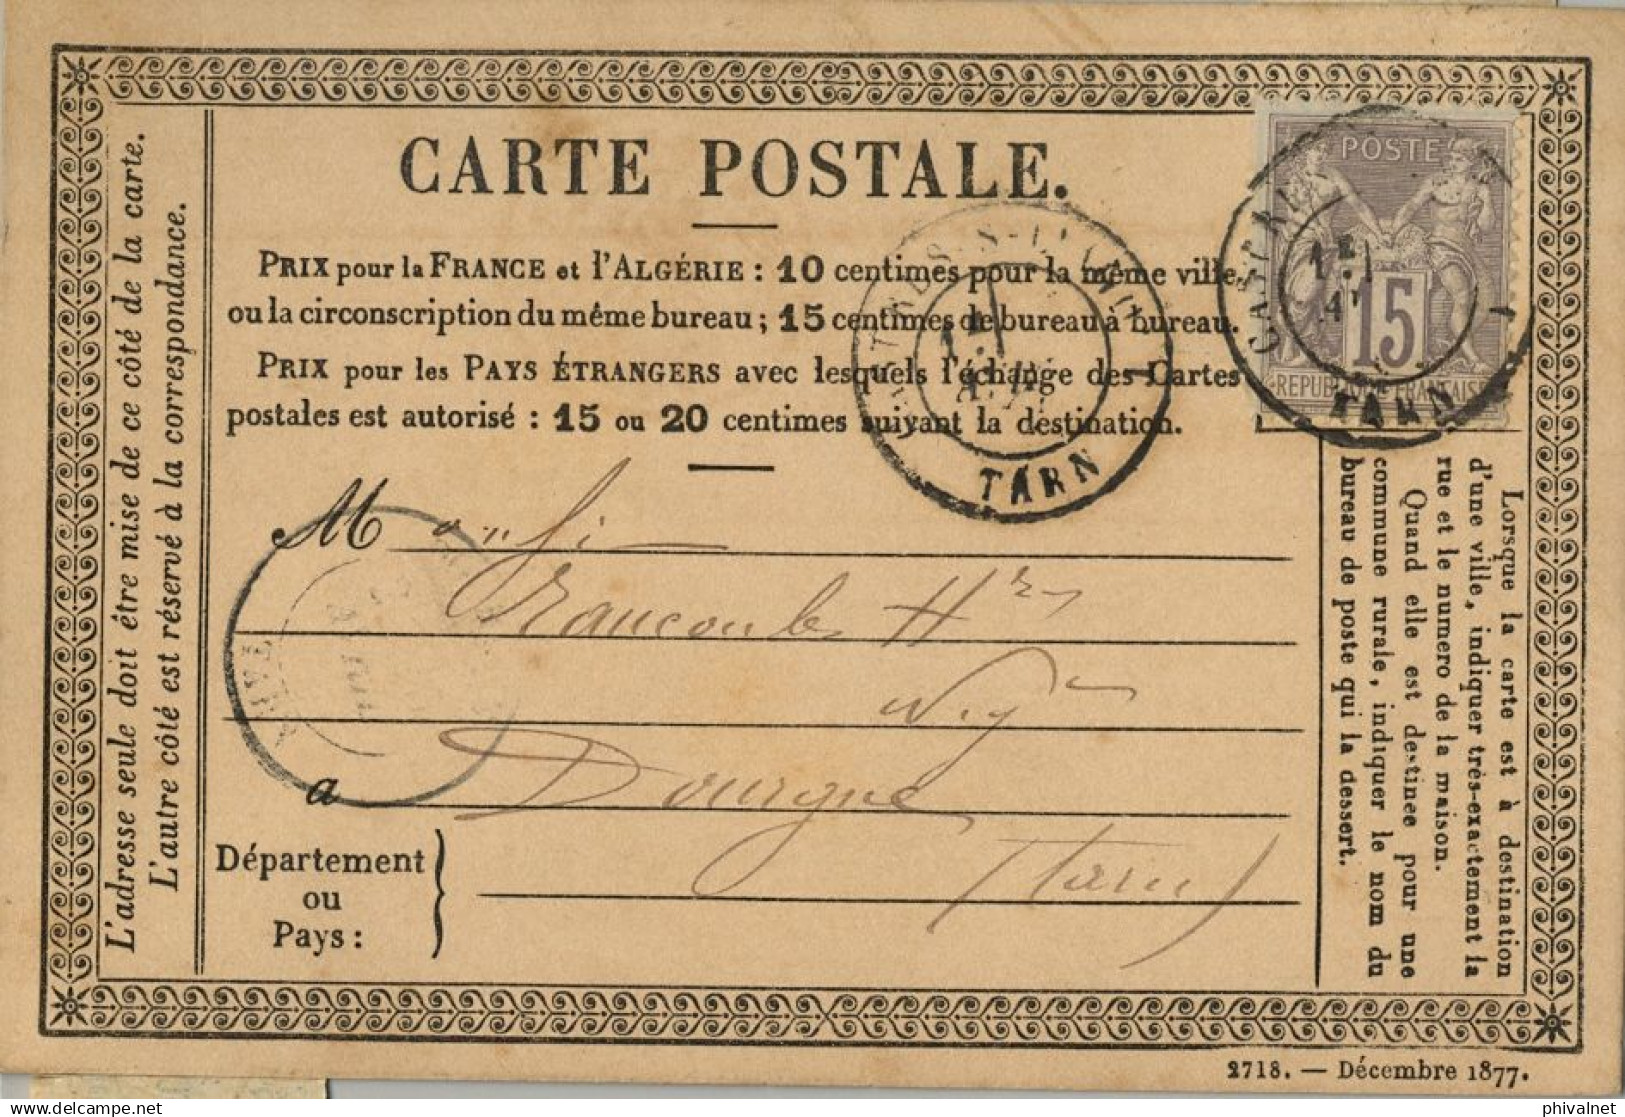 CARTE POSTALE.
PRIX pour la FRANCE et l'ALGÉRIE : 10 centimes pour la même ville
ou la circonscription du même bureau ; 15 centimes de bureau à bureau.
PRIX pour les PAYS ÉTRANGERS avec lesquels l'échange des Cartes
postales est autorisé : 15 ou 20 centimes suivant la destination.
L'adresse seule doit être mise de ce côté de la carte.
L'autre côté est réservé à la correspondance.
POSTE
15
REPUBLIQUE FRANÇAISE
TARN
TARN
M
à Dourgne
Département
ou
Pays :
(Tarn)
Lorsque la carte est à destination
d'une ville, indiquer très-exactement la
rue et le numero de la maison.
Quand elle est destinee pour une
commune rurale, indiquer le nom du
bureau de poste qui la dessert.
2718. — Décembre 1877.
phivalnet